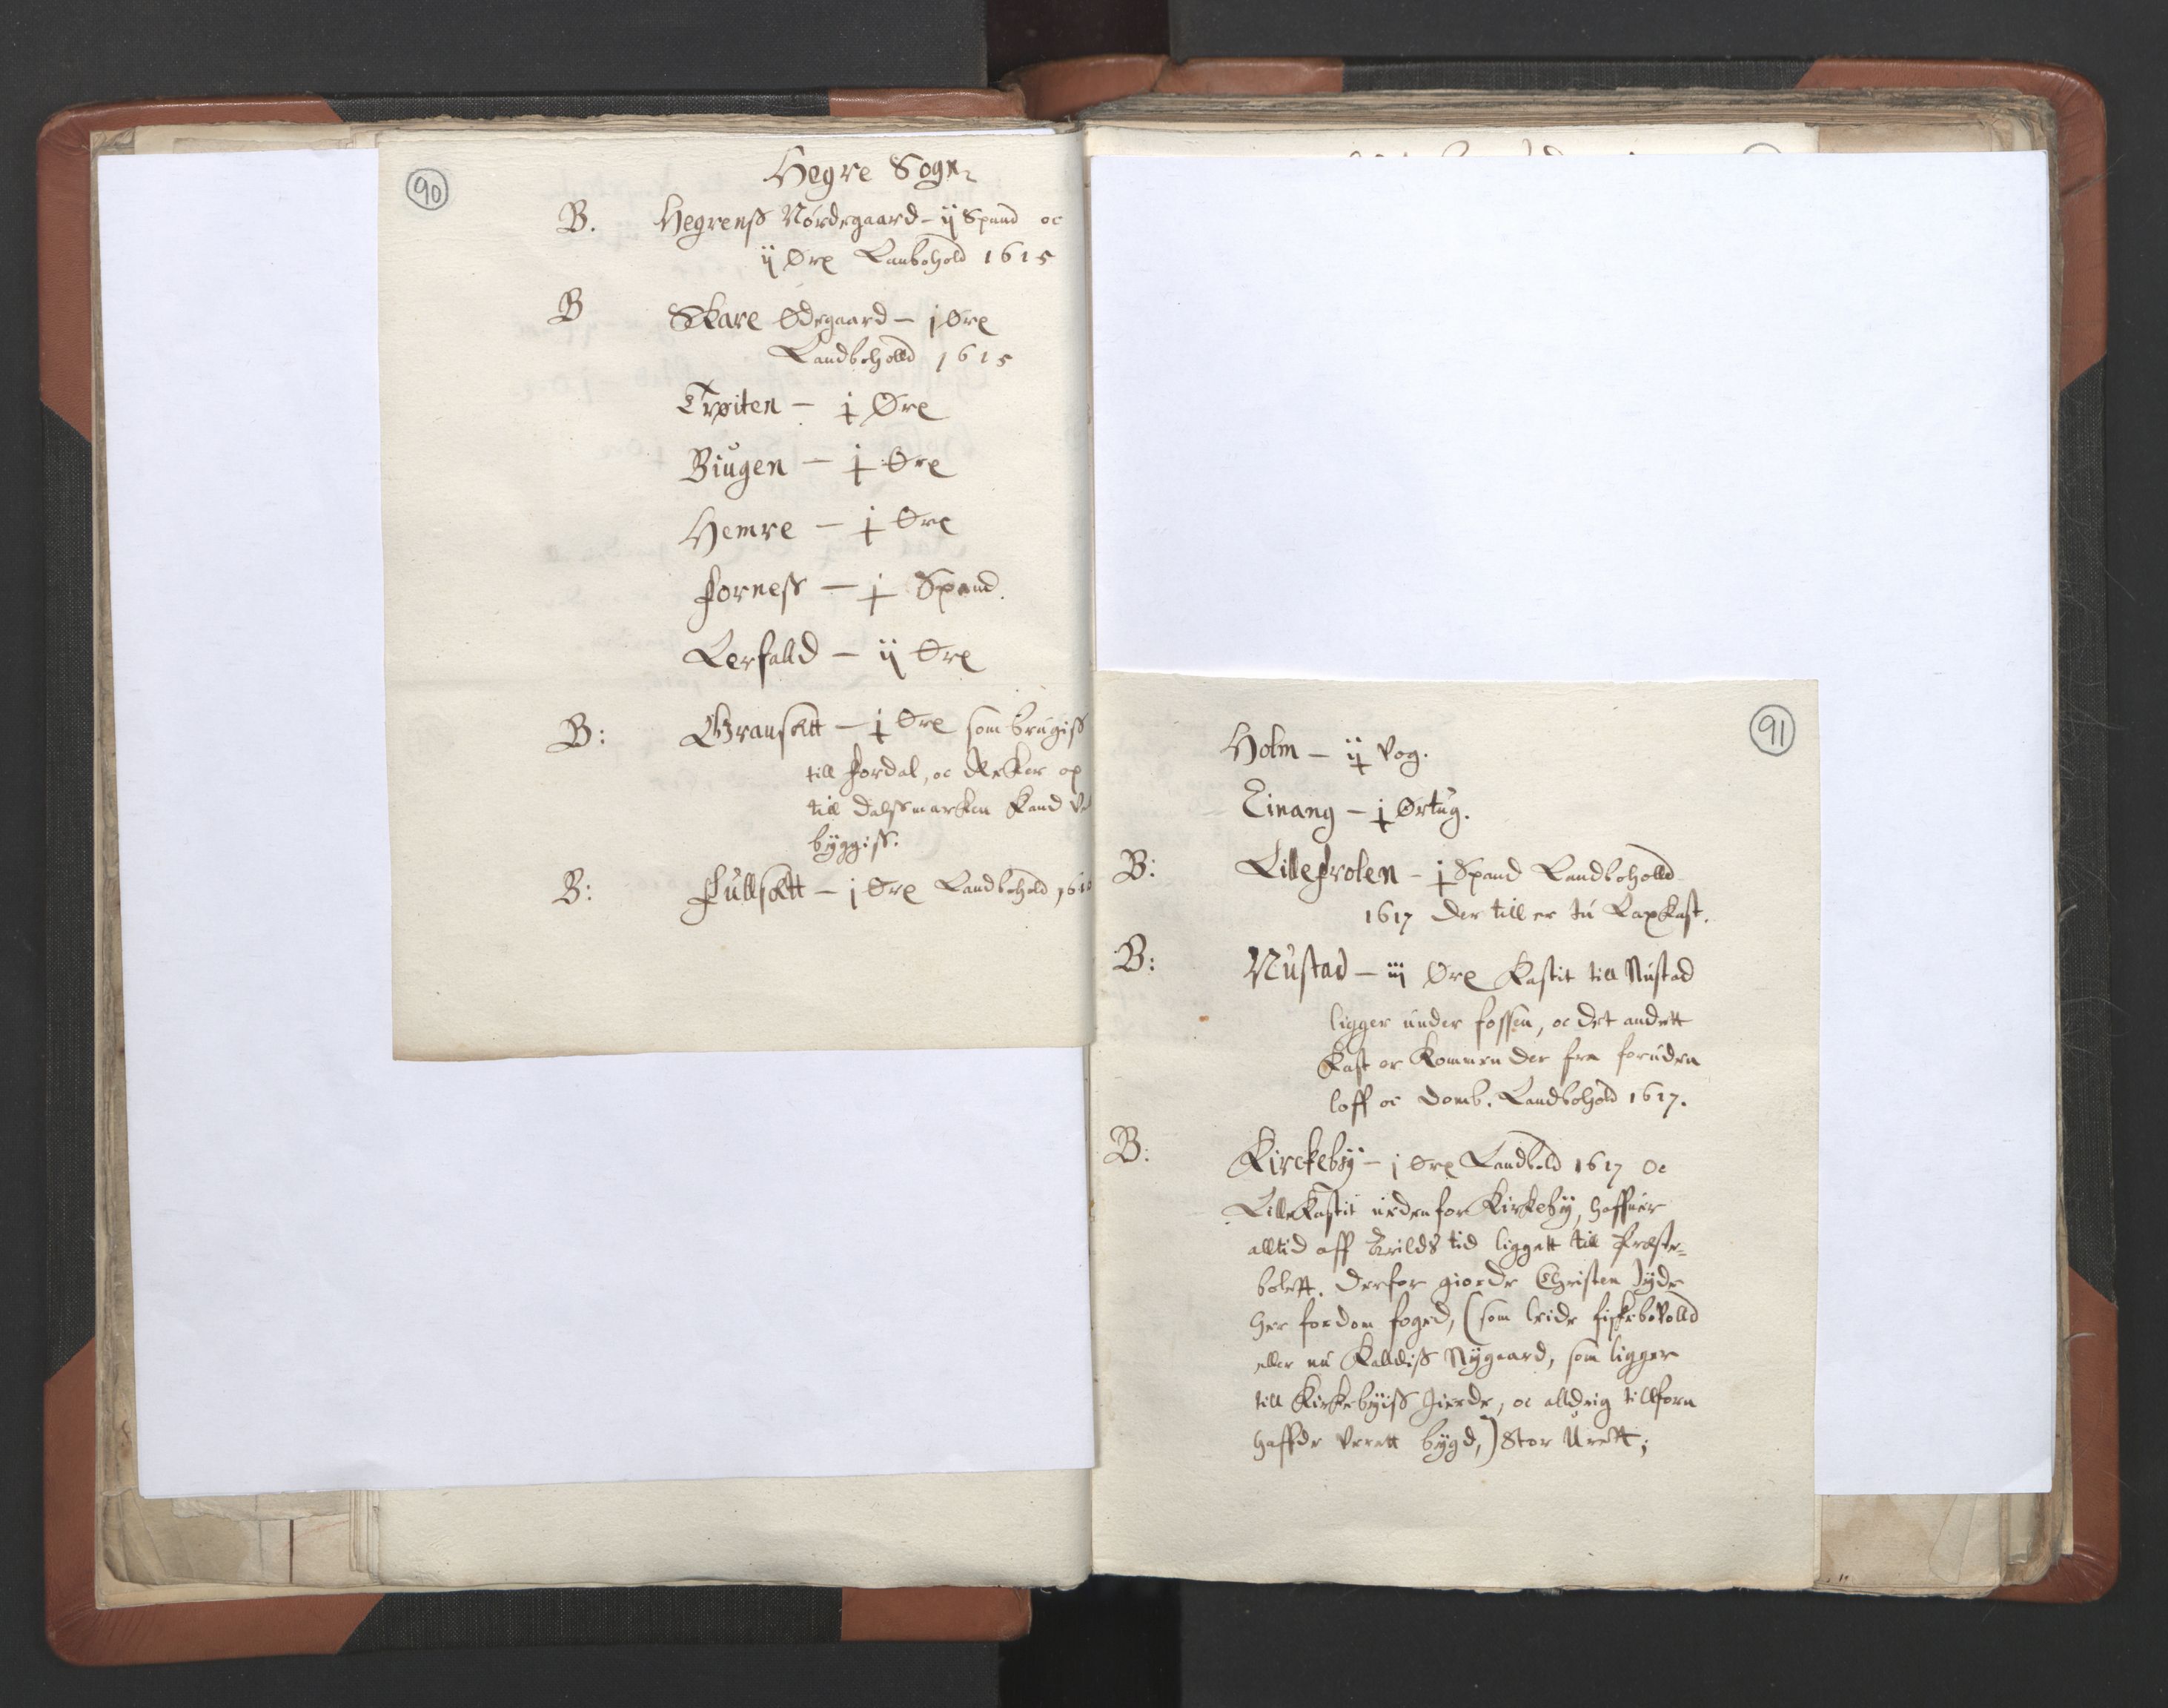 90
Hegre Sogn
B. Hegrenss Nørdegaard - ij Spand oc
ij Øre Lanbohold 1615
B Skare Ødegaard - j Øre
Landboholld 1615
Trøiten - j Øre
Biugen - j Øre
Hemre - j Øre
Forness - j Spand.
Lerfalld - ij Øre
B: Gransett - j Øre som brugiss
till Fordal, oc Rekker op
till Dalssmarken kand
byggiss.
B: Fullsett - j Øre Landbohold
91
Holm - ij Vog.
Einang - j Ørtug.
B: Lillefrolen - j Spand Landboholld
1617 der till er tu Laxkast.
B: Nustad - iij Øre Kastit till Nustad
ligger under fossen, oc det andett
kast er kommen der fra foruden
loff oc domb. Landbohold 1617.
B: Kirckeby - j Øre Landbold 1617 Oc
Lillekastit nedenfor Kirkeby, haffuer
alltid aff Arilds tid liggett till Præste-
bolett. Derfor giorde Christen Jyde
her fordom foged, (som leide fiskebovolld
eller nu kalldiss Nygaard, som ligger
till Kirkebyiss Jierde, oc alldrig tillforn
haffde verett bygd,) Stor Urett;